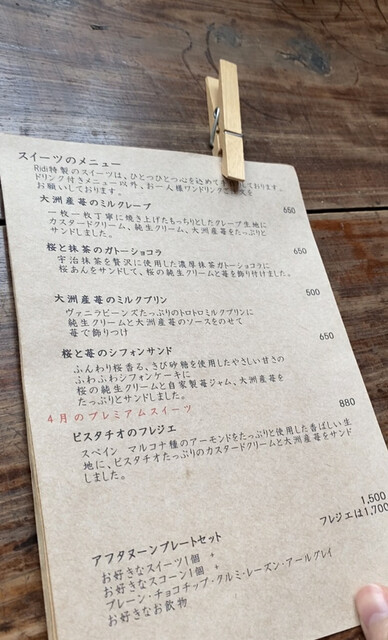 スイーツのメニュー
Ridi特製のスイーツは、ひとつひとつ心を込めて しております。
ドリンク付きメニュー以外、お一人様ワンドリンク 文を
お願いしております。
大洲産苺のミルクレープ 650
一枚一枚丁寧に焼き上げたもっちりとしたクレープ生地に
カスタードクリーム、純生クリーム、大洲産苺をたっぷりと
サンドしました。
桜と抹茶のガトーショコラ 650
宇治抹茶を贅沢に使用した濃厚抹茶ガトーショコラに
桜あんをサンドして、桜の純生クリームと苺を飾り付けました。
大洲産苺のミルクプリン 500
ヴァニラビーンズたっぷりのトロトロミルクプリンに
純生クリームと大洲産苺のソースをのせて
苺で飾りつけ
桜と苺のシフォンサンド 650
ふんわり桜香る、きび砂糖を使用したやさしい甘さの
ふわふわシフォンケーキに
桜の純生クリームと自家製苺ジャム、大洲産苺を
たっぷりとサンドしました。
4月のプレミアムスイーツ
ピスタチオのフレジエ 880
スペイン マルコナ種のアーモンドをたっぷりと使用した香ばしい生
地に、ピスタチオたっぷりのカスタードクリームと大洲産苺をサンド
しました。
1,500
アフタヌーンプレートセット フレジエは1,700
お好きなスイーツ1個 +
お好きなスコーン1個 +
プレーン・チョコチップ・クルミ・レーズン・アールグレイ
お好きなお飲物